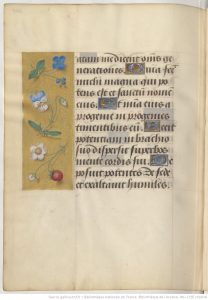 atam me dicent om̄s
generationes. Quia fec̄
michi magna qui po
tens est et sanctū nomē
eius. Et mīa eius a
progenie in progenies
timentibus eū. Fecit
potentiam in brachio
suo dispersit superbos
mente cordis sui. De
posuit potentes de sede
et exaltauit humiles.
Source gallica.bnf.fr / Bibliothèque nationale de France. Bibliothèque de l'Arsenal.